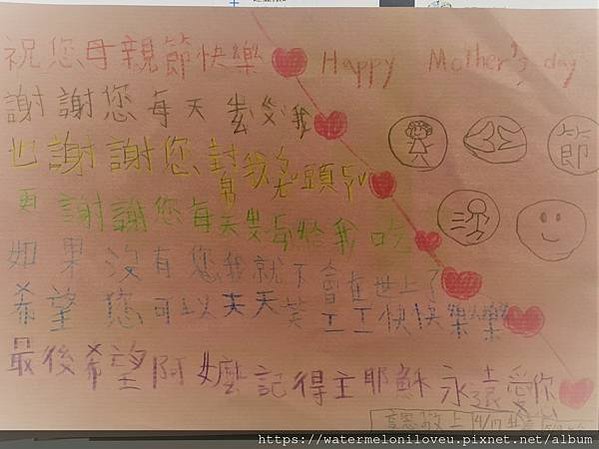 祝您母親節快樂 Happy Mother's day
謝謝您每天去
也謝謝您幫我
更謝謝您每天
節
如果沒有您我就不會在世上了
希望您可以天天笑工工快快樂樂
最後希望阿嬤記得主耶穌永遠愛你
敬上
https://watermeloniloveu.pixnet.net/album